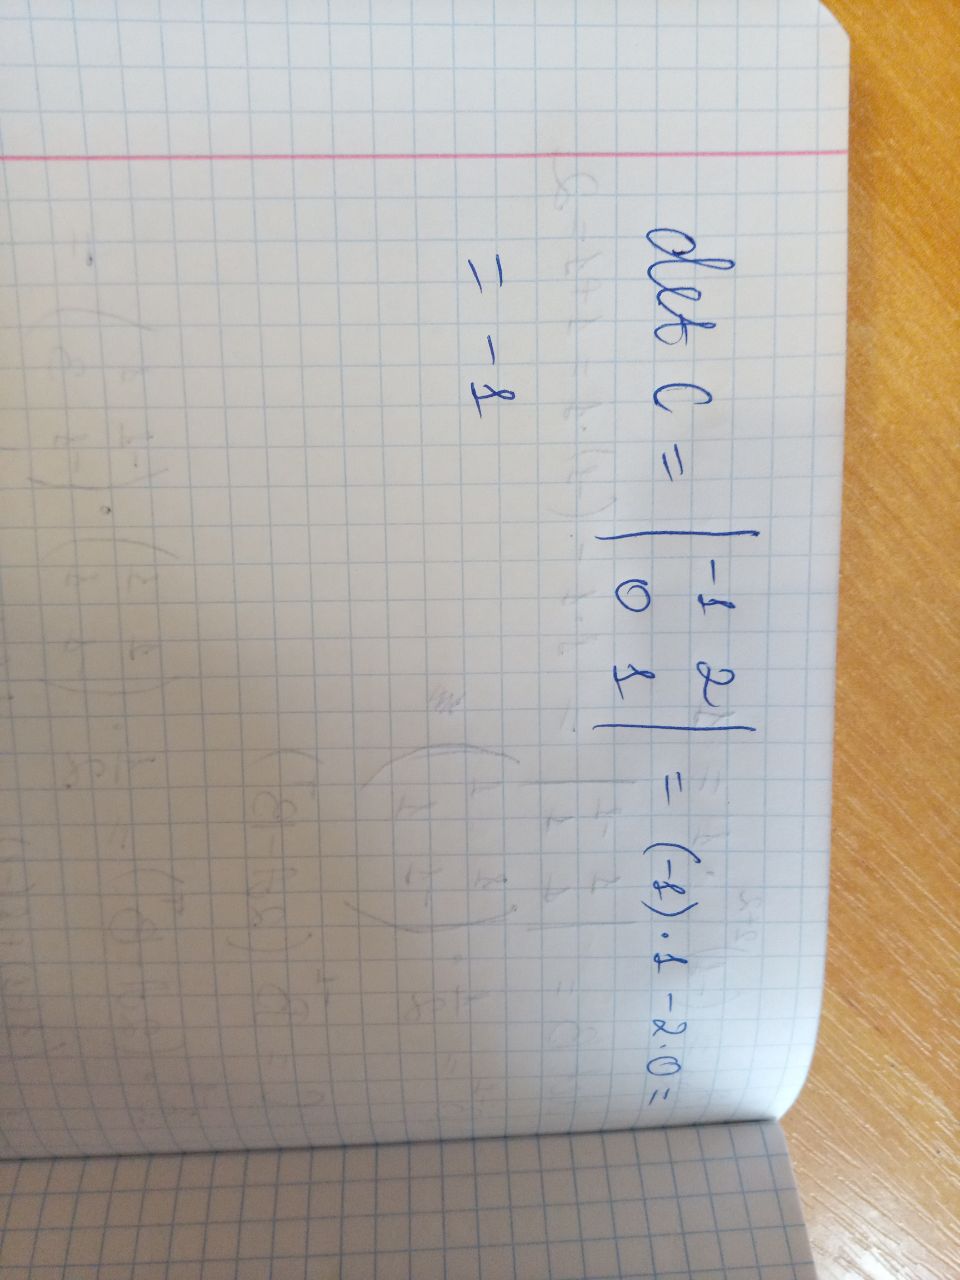 det C = | -1 2 ; 0 1 | = (-1) · 1 - 2 · 0 =
= -1